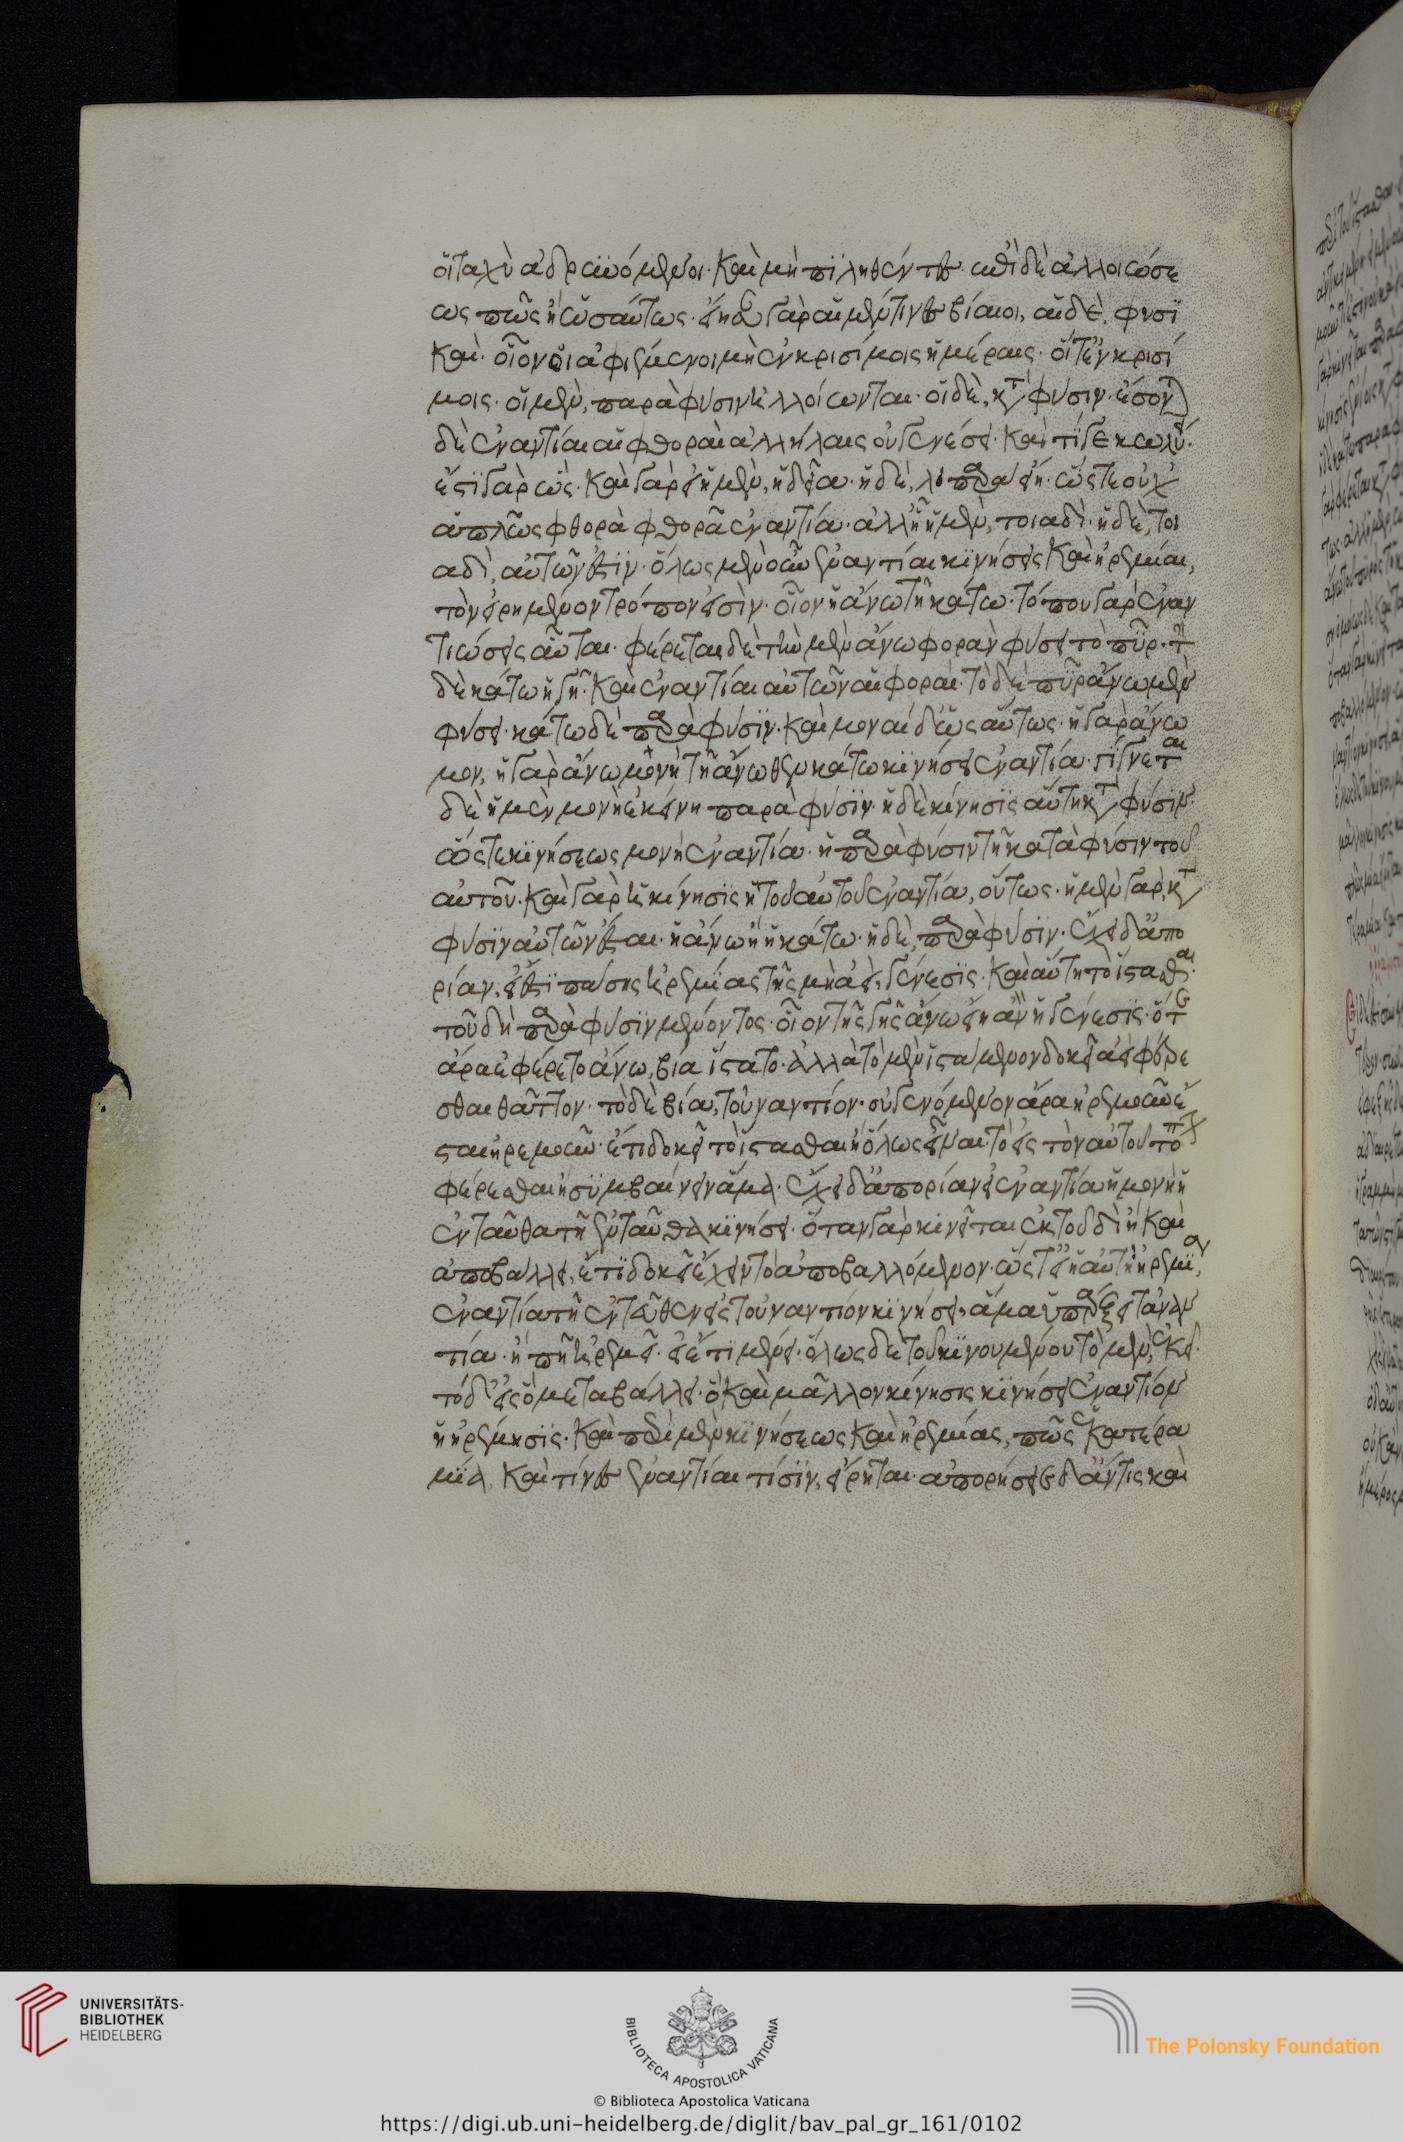 οἱ ταχὺ ἁδρυνόμενοι· καὶ μὴ πιληθέντες· αἱ δὲ ἀλλοιώσε
ως πῶς ἢ ὡσαύτως· εἴησαν γὰρ ἂν μέν τινες βίαιοι, αἱ δὲ, φυσι
καὶ· οἷον οἱ ἀφιέμενοι μὴ ἐν κρισίμοις ἡμέραις· οἵ τ' ἐν κρισί
μοις· οἱ μὲν, παρὰ φύσιν ἠλλοίωνται· οἱ δὲ, κατὰ φύσιν· ἔσονται
δὲ ἐναντίαι αἱ φθοραὶ ἀλλήλαις οὐ γενέσει· καὶ τί γε κωλύει·
ἔστι γὰρ ὥς· καὶ γὰρ εἰ ἡ μὲν, ἡδεῖα· ἡ δὲ, λυπηρὰ εἴη· ὥστε οὐχ
ἁπλῶς φθορὰ φθορᾷ ἐναντία· ἀλλ' ᾗ ἡ μὲν, τοιαδὶ· ἡ δὲ, τοι
αδὶ, αὐτῶν ἐστιν· ὅλως μὲν οὖν ἐναντίαι κινήσεις καὶ ἠρεμίαι,
τὸν εἰρημένον τρόπον εἰσὶν· οἷον ἡ ἄνω τῇ κάτω· τόπου γὰρ ἐναν
τιώσεις αὗται· φέρεται δὲ τὴν μὲν ἄνω φορὰν φύσει τὸ πῦρ· τὴν
δὲ κάτω ἡ γῆ· καὶ ἐναντίαι αὐτῶν αἱ φοραί· τὸ δὲ πῦρ ἄνω μὲν
φύσει· κάτω δὲ παρὰ φύσιν· καὶ μοναὶ δὲ ὡσαύτως· ἡ γὰρ ἄνω
μον, ἡ γὰρ ἄνω μονὴ τῇ ἄνωθεν κάτω κινήσει ἐναντία· γίγνεται
δὲ ἡ μὲν μονὴ ἐκείνη παρὰ φύσιν· ἡ δὲ κίνησις αὕτη κατὰ φύσιν·
ὥστε κινήσεως μονὴ ἐναντία· ἡ παρὰ φύσιν τῇ κατὰ φύσιν τοῦ
αὐτοῦ· καὶ γὰρ ἡ κίνησις ἡ τοῦ αὐτοῦ ἐναντία, οὕτως· ἡ μὲν γὰρ, κατὰ
φύσιν αὐτῶν ἔσται· ἡ ἄνω ἢ ἡ κάτω· ἡ δὲ, παρὰ φύσιν· ἔχει δ' ἀπο
ρίαν, εἰ ἔστι πάσης ἠρεμίας τῆς μὴ ἀεὶ, γένεσις· καὶ αὕτη τὸ ἵστασθαι·
τοῦ δὴ παρὰ φύσιν μένοντος· οἷον τῆς γῆς ἄνω εἴη ἂν ἡ γένεσις· ὅτε
ἄρα ἐφέρετο ἄνω, βίᾳ ἵστατο· ἀλλὰ τὸ μὲν ἱστάμενον δοκεῖ ἀεὶ φέρε
σθαι θᾶττον· τὸ δὲ βίᾳ, τοὐναντίον· οὐ γενόμενον ἄρα ἠρεμοῦν ἔ
σται ἠρεμοῦν· ἔτι δοκεῖ τὸ ἵστασθαι ἢ ὅλως εἶναι τὸ εἰς τὸν αὑτοῦ τόπον
φέρεσθαι ἢ συμβαίνειν ἅμα· ἔχει δ' ἀπορίαν εἰ ἐναντία ἡ μονὴ ἡ
ἐνταῦθα τῇ ἐνταῦθα κινήσει· ὅταν γὰρ κινῆται ἐκ τουδὶ ἢ καὶ
ἀποβάλλει, ἔτι δοκεῖ ἔχειν τὸ ἀποβαλλόμενον· ὥστ' εἰ ἡ αὐτὴ ἠρεμία,
ἐναντία τῇ ἐντεῦθεν εἰς τοὐναντίον κινήσει, ἅμα ὑπάρξει τἀναν
τία· ἢ πῇ ἠρεμεῖ· εἰ ἔτι μένει· ὅλως δὲ τοῦ κινουμένου τὸ μὲν, ἐκεῖ·
τὸ δ' εἰς ὃ μεταβάλλει· ὃ καὶ μᾶλλον κίνησις κινήσει ἐναντίον
ἢ ἠρέμησις· καὶ περὶ μὲν κινήσεως καὶ ἠρεμίας, πῶς ἑκατέρα
μία, καὶ τίνες ἐναντίαι τίσιν, εἴρηται· ἀπορήσειε δ' ἄν τις καὶ
UNIVERSITÄTS-
BIBLIOTHEK
HEIDELBERG
BIBLIOTECA APOSTOLICA VATICANA
© Biblioteca Apostolica Vaticana
The Polonsky Foundation
https://digi.ub.uni-heidelberg.de/diglit/bav_pal_gr_161/0102